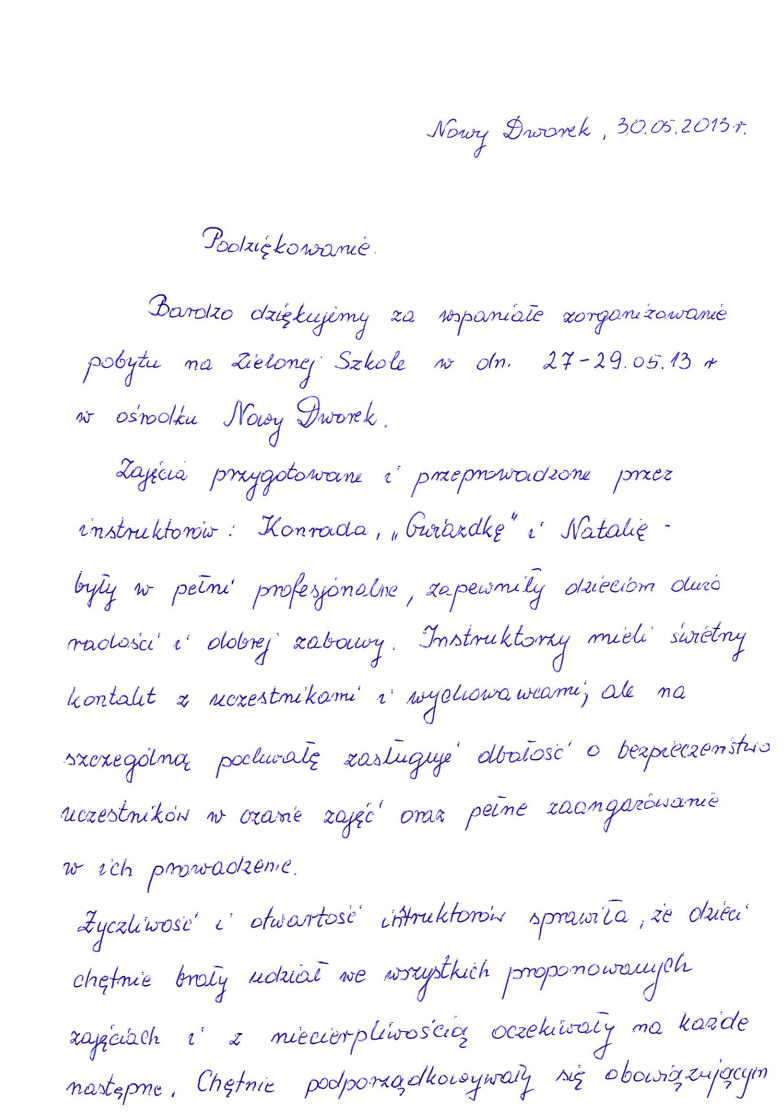 Nowy Dworek, 30.05.2013 r.
Podziękowanie.
Bardzo dziękujemy za wspaniałe zorganizowanie
pobytu na Zielonej Szkole w dn. 27-29.05.13 r
w ośrodku Nowy Dworek.
Zajęcia przygotowane i przeprowadzone przez
instruktorów: Konrada, „Gwiazdkę" i Natalię -
były w pełni profesjonalne, zapewniły dzieciom dużo
radości i dobrej zabawy. Instruktorzy mieli świetny
kontakt z uczestnikami i wychowawcami, ale na
szczególną pochwałę zasługuje dbałość o bezpieczeństwo
uczestników w czasie zajęć oraz pełne zaangażowanie
w ich prowadzenie.
Życzliwość i otwartość intruktorów sprawiła, że dzieci
chętnie brały udział we wszystkich proponowanych
zajęciach i z niecierpliwością oczekiwały na każde
następne. Chętnie podporządkowywały się obowiązującym